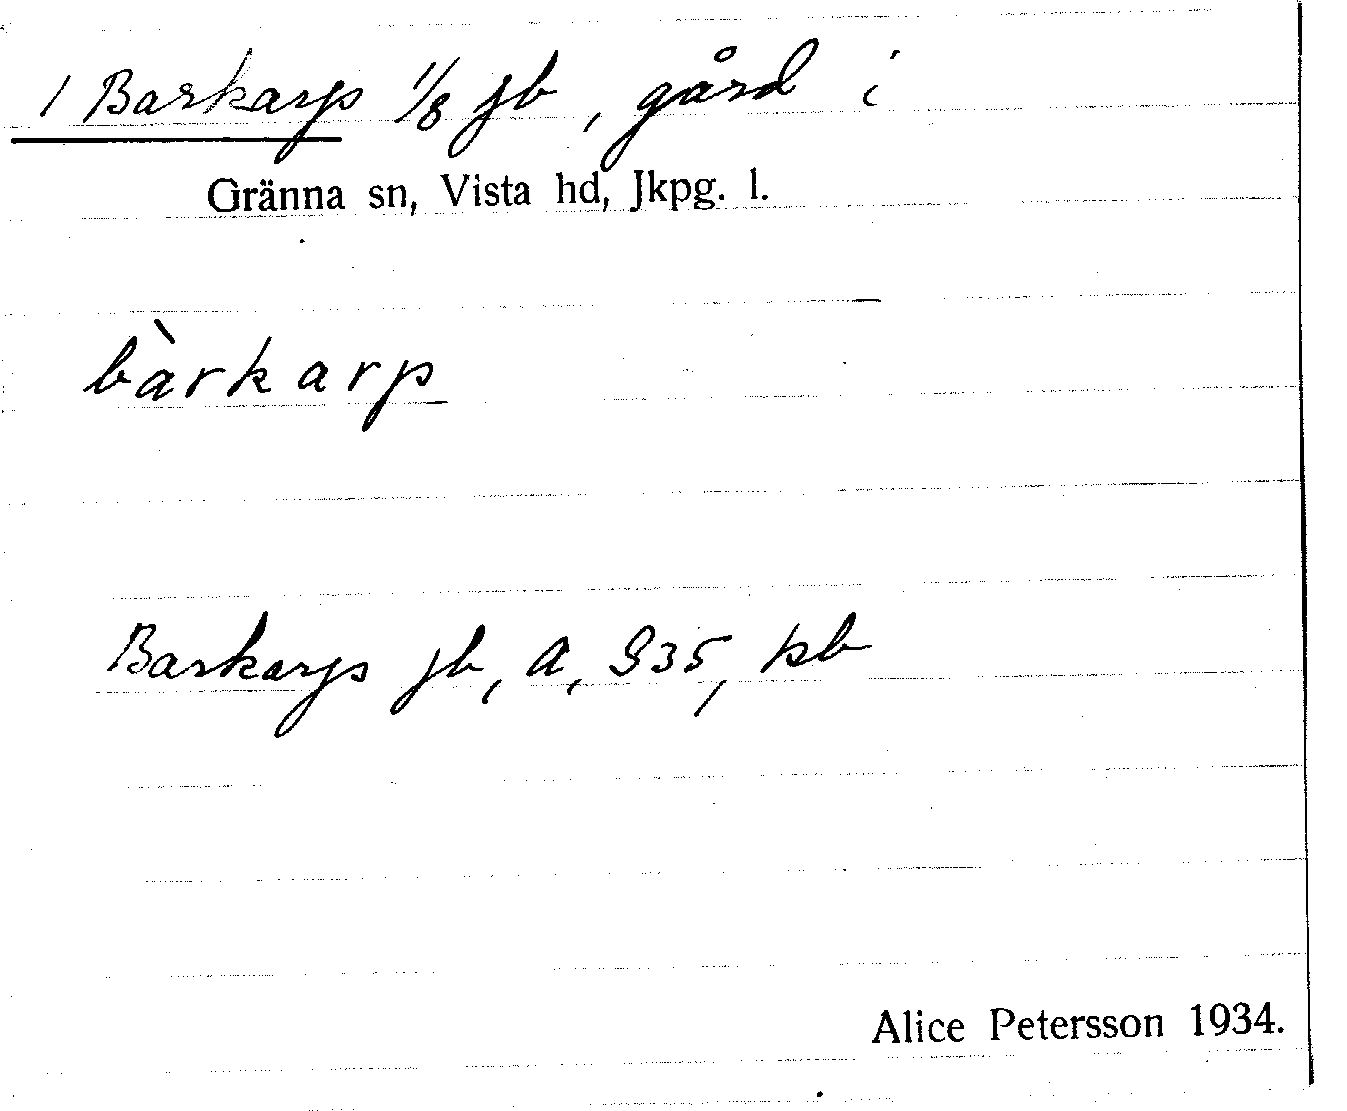 1 Barkarp 1/8 jb, gård i
Gränna sn, Vista hd, Jkpg. l.
bàrkarp
Barkarp jb, A, S35, kb
Alice Petersson 1934.